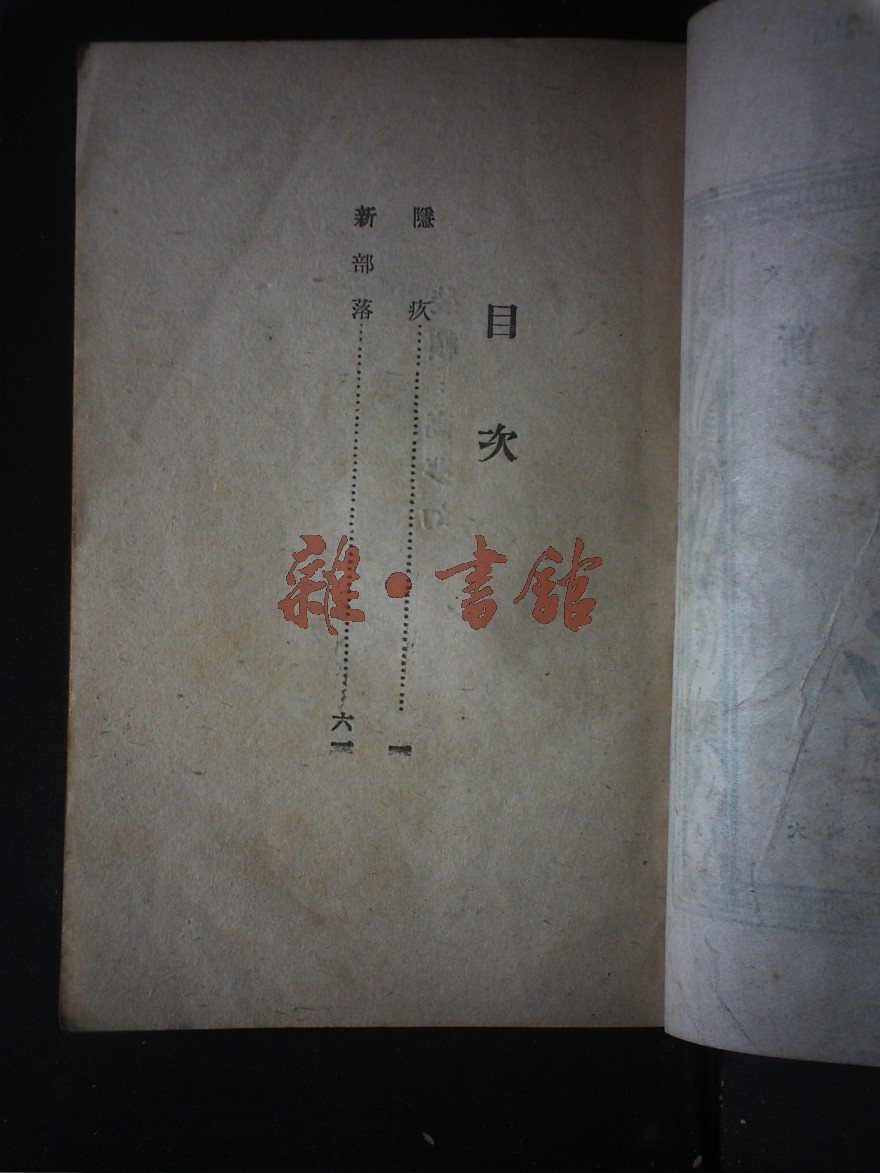 目次
隱疚……一
新部落……六一
雜·書館